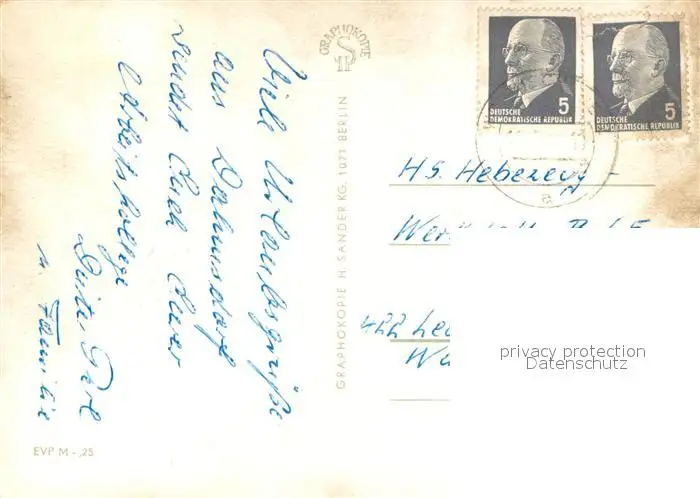 Viele Urlaubsgrüße
aus Dahmsdorf
sendet Euch Euer
Arbeitskollege
Dieter
u. Familie
EVP M -,25
GRAPHOKOPIE
GRAPHOKOPIE H. SANDER KG. 1071 BERLIN
5
DEUTSCHE
DEMOKRATISCHE REPUBLIK
5
DEUTSCHE
DEMOKRATISCHE REPUBLIK
HS. Hebezeug-
422
privacy protection
Datenschutz